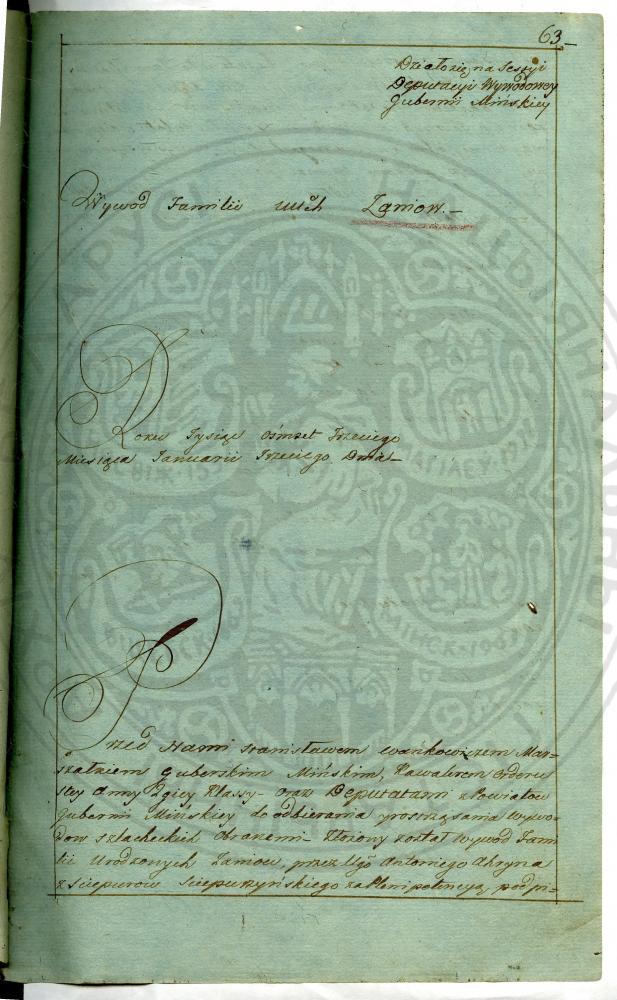 63
Działo się na Sessyi
Deputacyi Wywodowey
Gubernii Mińskiey
Wywod Familii Zaniow.
Roku Tysiąc ośmset Trzeciego
Miesiąca Januarii Trzeciego Dnia
Przed Nami Stanisławem Wańkowiczem Mar-
szałkiem Guberskim Mińskim, Kawalerem Orderu
Stey Anny 2giey Klassy oraz Deputatami z Powiatow
Gubernii Mińskiey do odbierania y roztrząsania wywo-
dow szlacheckich obranemi Złożony został wywod Fami
lii Urodzonych Zaniow, przez Antoniego Ahryna
z Plenipotencyą podpi-